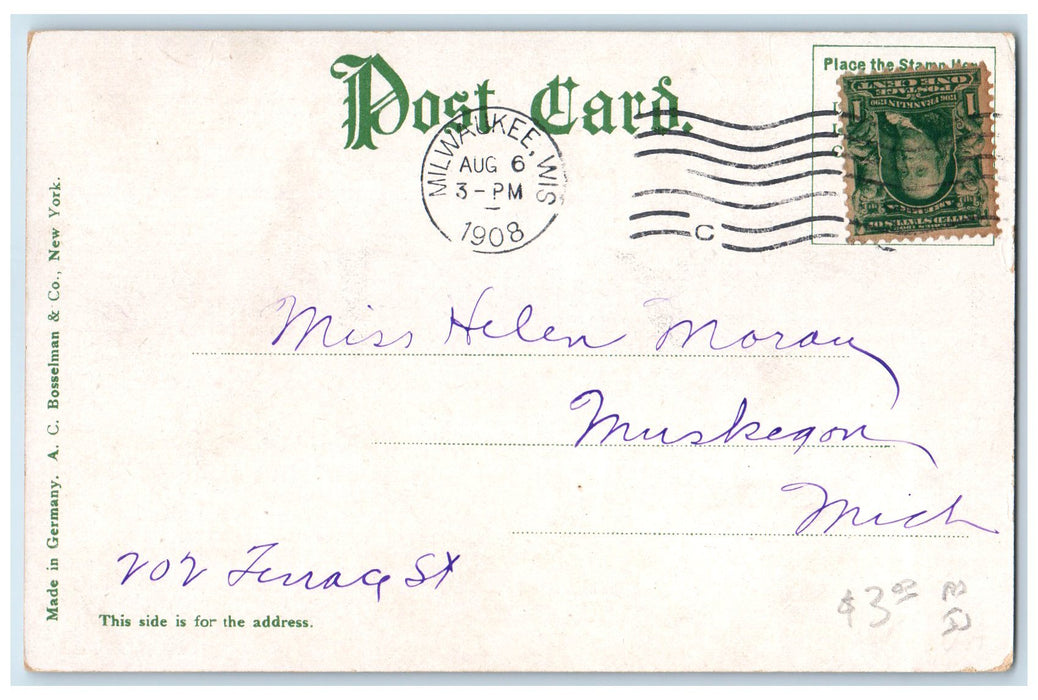 Post Card.
Place the Stamp
MILWAUKEE, WIS
AUG 6
3-PM
1908
C
POSTAGE
ONE CENT
1 1
Made in Germany. A. C. Bosselman & Co., New York.
Miss Helen Moran
Muskegon
Mich
202 Terrace St
This side is for the address.
$3.00